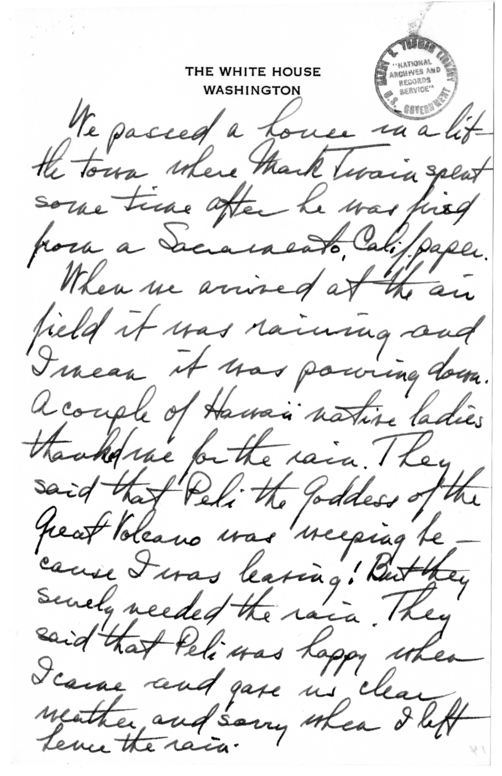 THE WHITE HOUSE
WASHINGTON
HARRY S. TRUMAN LIBRARY
"NATIONAL
ARCHIVES AND
RECORDS
SERVICE"
U.S. GOVERNMENT
We passed a house in a lit-
tle town where Mark Twain spent
some time after he was fired
from a Sacramento, Calif. paper.
When we arrived at the air
field it was raining and
I mean it was pouring down.
A couple of Hawaii native ladies
thanked me for the rain. They
said that Peli the Goddess of the
Great Volcano was weeping be-
cause I was leaving! But they
surely needed the rain. They
said that Peli was happy when
I came and gave us clear
weather and sorry when I left
hence the rain.
41